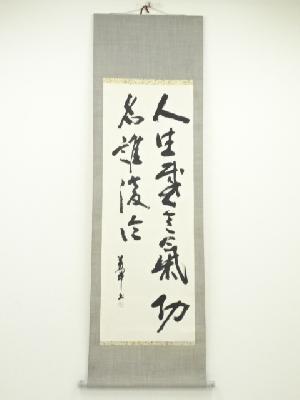 人生感意氣功
名誰復論